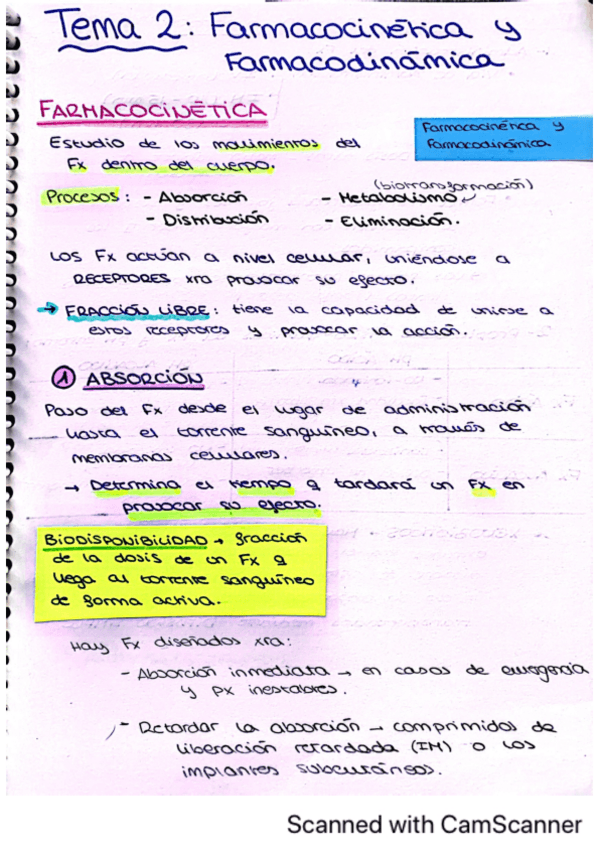 Tema 2: Farmacocinética y
Farmacodinámica
FARMACOCINÉTICA
Farmacocinética y
Farmacodinámica
Estudio de los movimientos del
Fx dentro del cuerpo.
(biotransformación)
Procesos: - Absorción - Metabolismo
- Distribución - Eliminación.
Los Fx actúan a nivel celular, uniéndose a
RECEPTORES xra provocar su efecto.
→ FRACCIÓN LIBRE: tiene la capacidad de unirse a
estos receptores y provocar la acción.
1 ABSORCIÓN
Paso del Fx desde el lugar de administración
hasta el torrente sanguíneo, a través de
membranas celulares.
→ Determina el tiempo q tardará un Fx en
provocar su efecto.
BIODISPONIBILIDAD → fracción
de la dosis de un Fx q
llega al torrente sanguíneo
de forma activa.
Hay Fx diseñados xra:
- Absorción inmediata → en casos de emergencia
y px inestables.
- Retardar la absorción → comprimidos de
liberación retardada (IM) o los
implantes subcutáneos.
Scanned with CamScanner